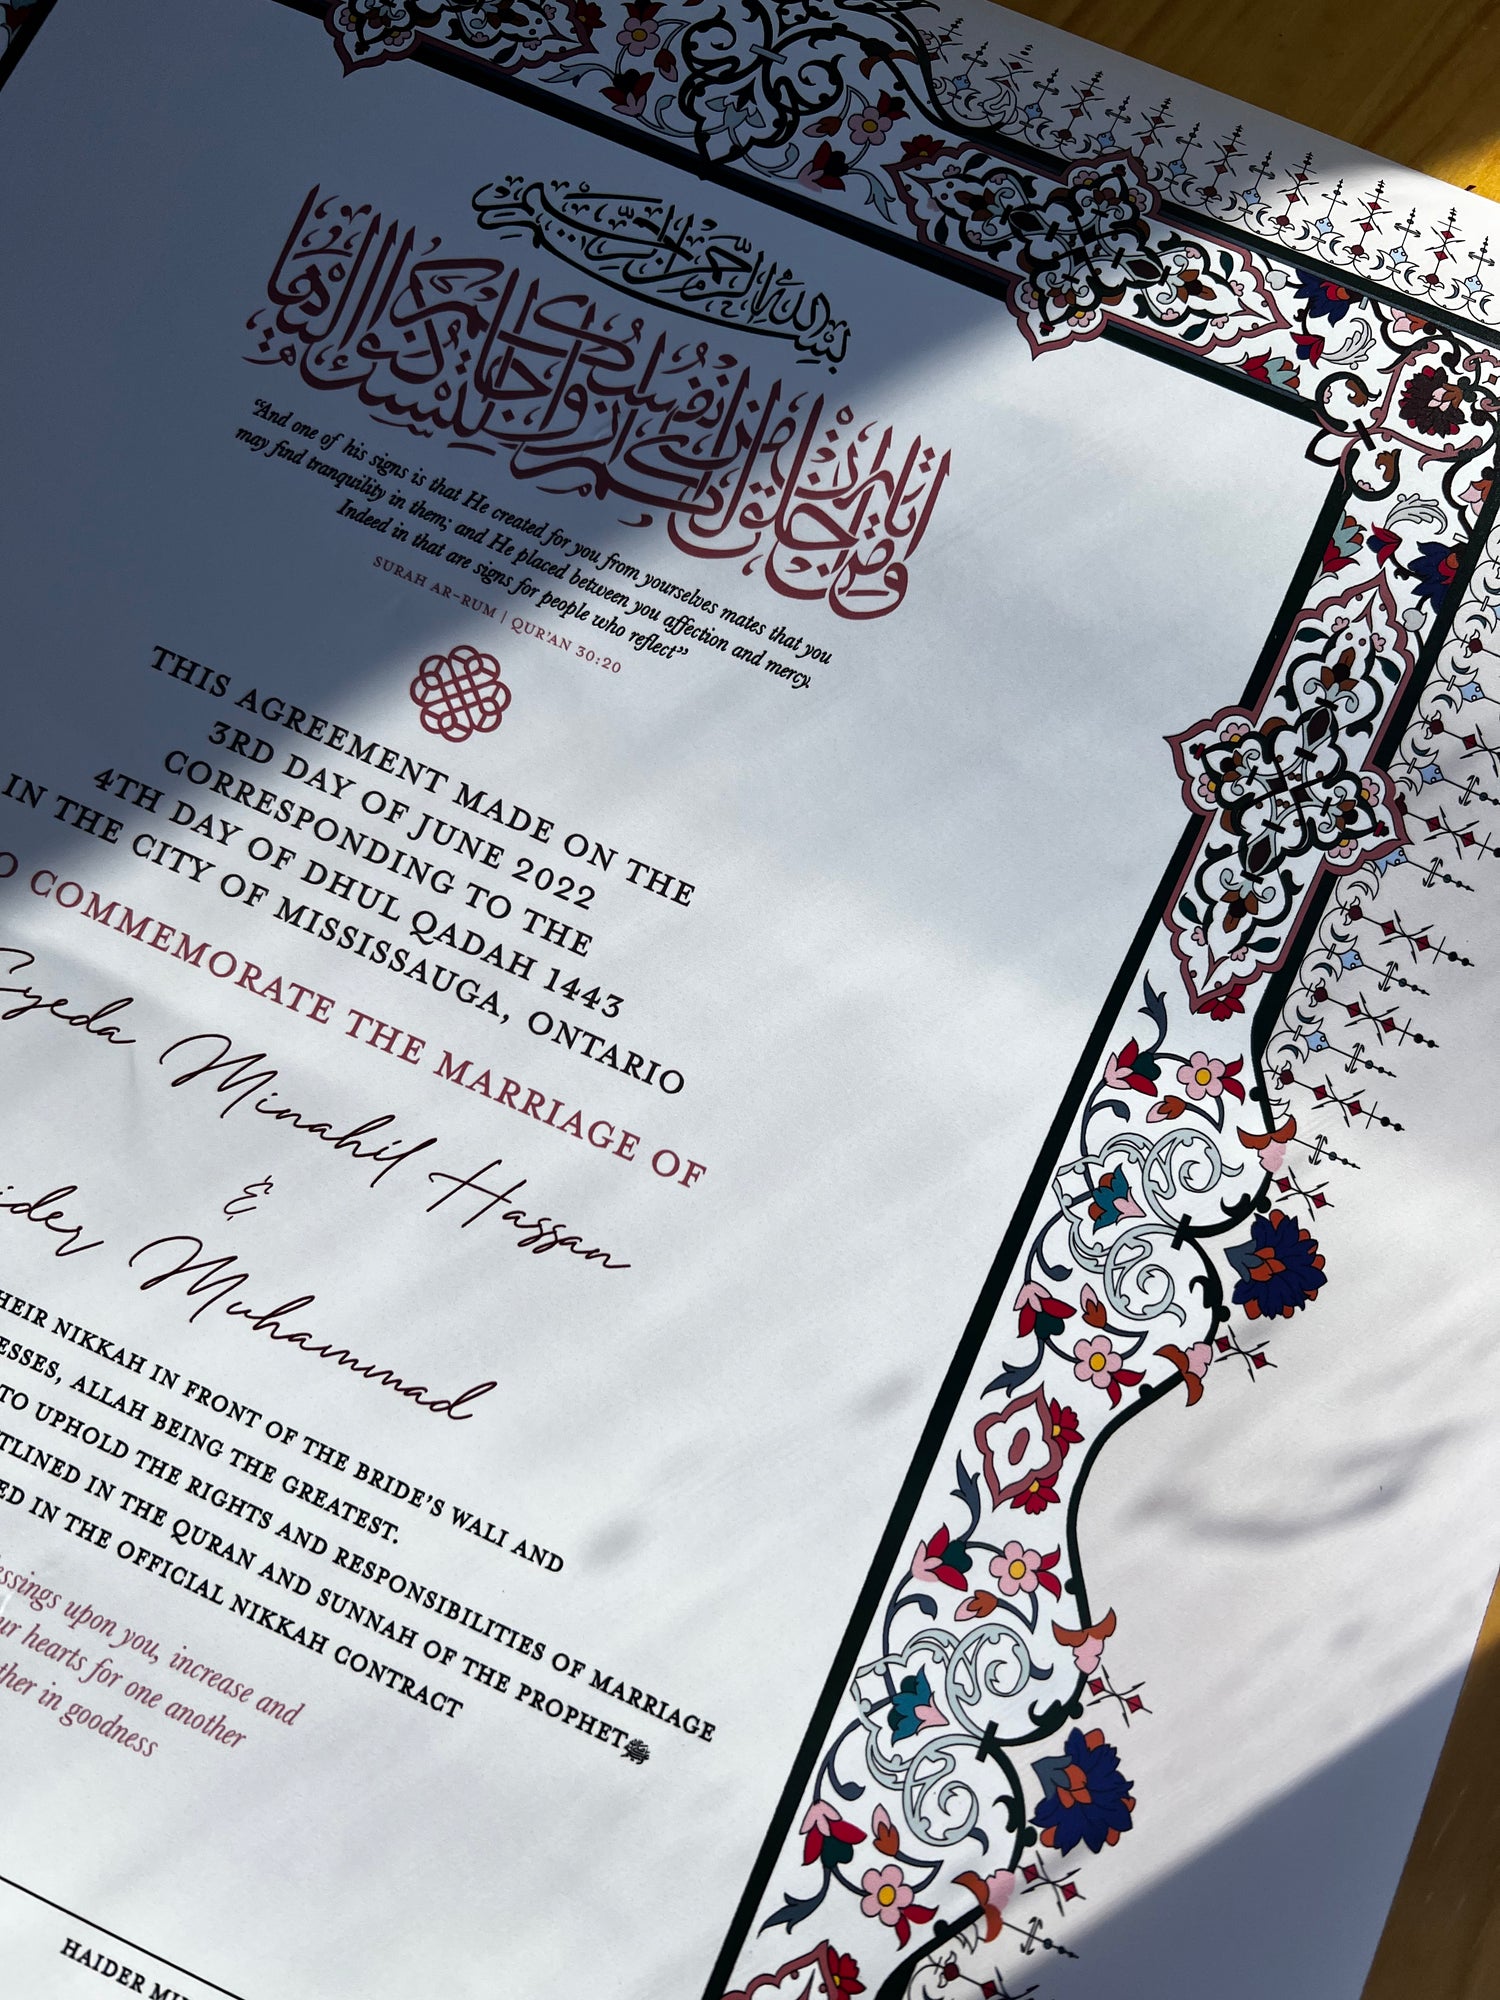 بسم الله الرحمن الرحيم
ومن آياته أن خلق لكم من أنفسكم أزواجا لتسكنوا إليها
“And one of his signs is that He created for you from yourselves mates that you
may find tranquility in them; and He placed between you affection and mercy.
Indeed in that are signs for people who reflect”
SURAH AR-RUM | QUR'AN 30:20
THIS AGREEMENT MADE ON THE
3RD DAY OF JUNE 2022
CORRESPONDING TO THE
4TH DAY OF DHUL QADAH 1443
IN THE CITY OF MISSISSAUGA, ONTARIO
O COMMEMORATE THE MARRIAGE OF
Syeda Minahil Hassan
&
ider Muhammad
HEIR NIKKAH IN FRONT OF THE BRIDE'S WALI AND
ESSES, ALLAH BEING THE GREATEST.
TO UPHOLD THE RIGHTS AND RESPONSIBILITIES OF MARRIAGE
TLINED IN THE QURAN AND SUNNAH OF THE PROPHET ﷺ
ED IN THE OFFICIAL NIKKAH CONTRACT
essings upon you, increase and
ur hearts for one another
ther in goodness
HAIDER MU